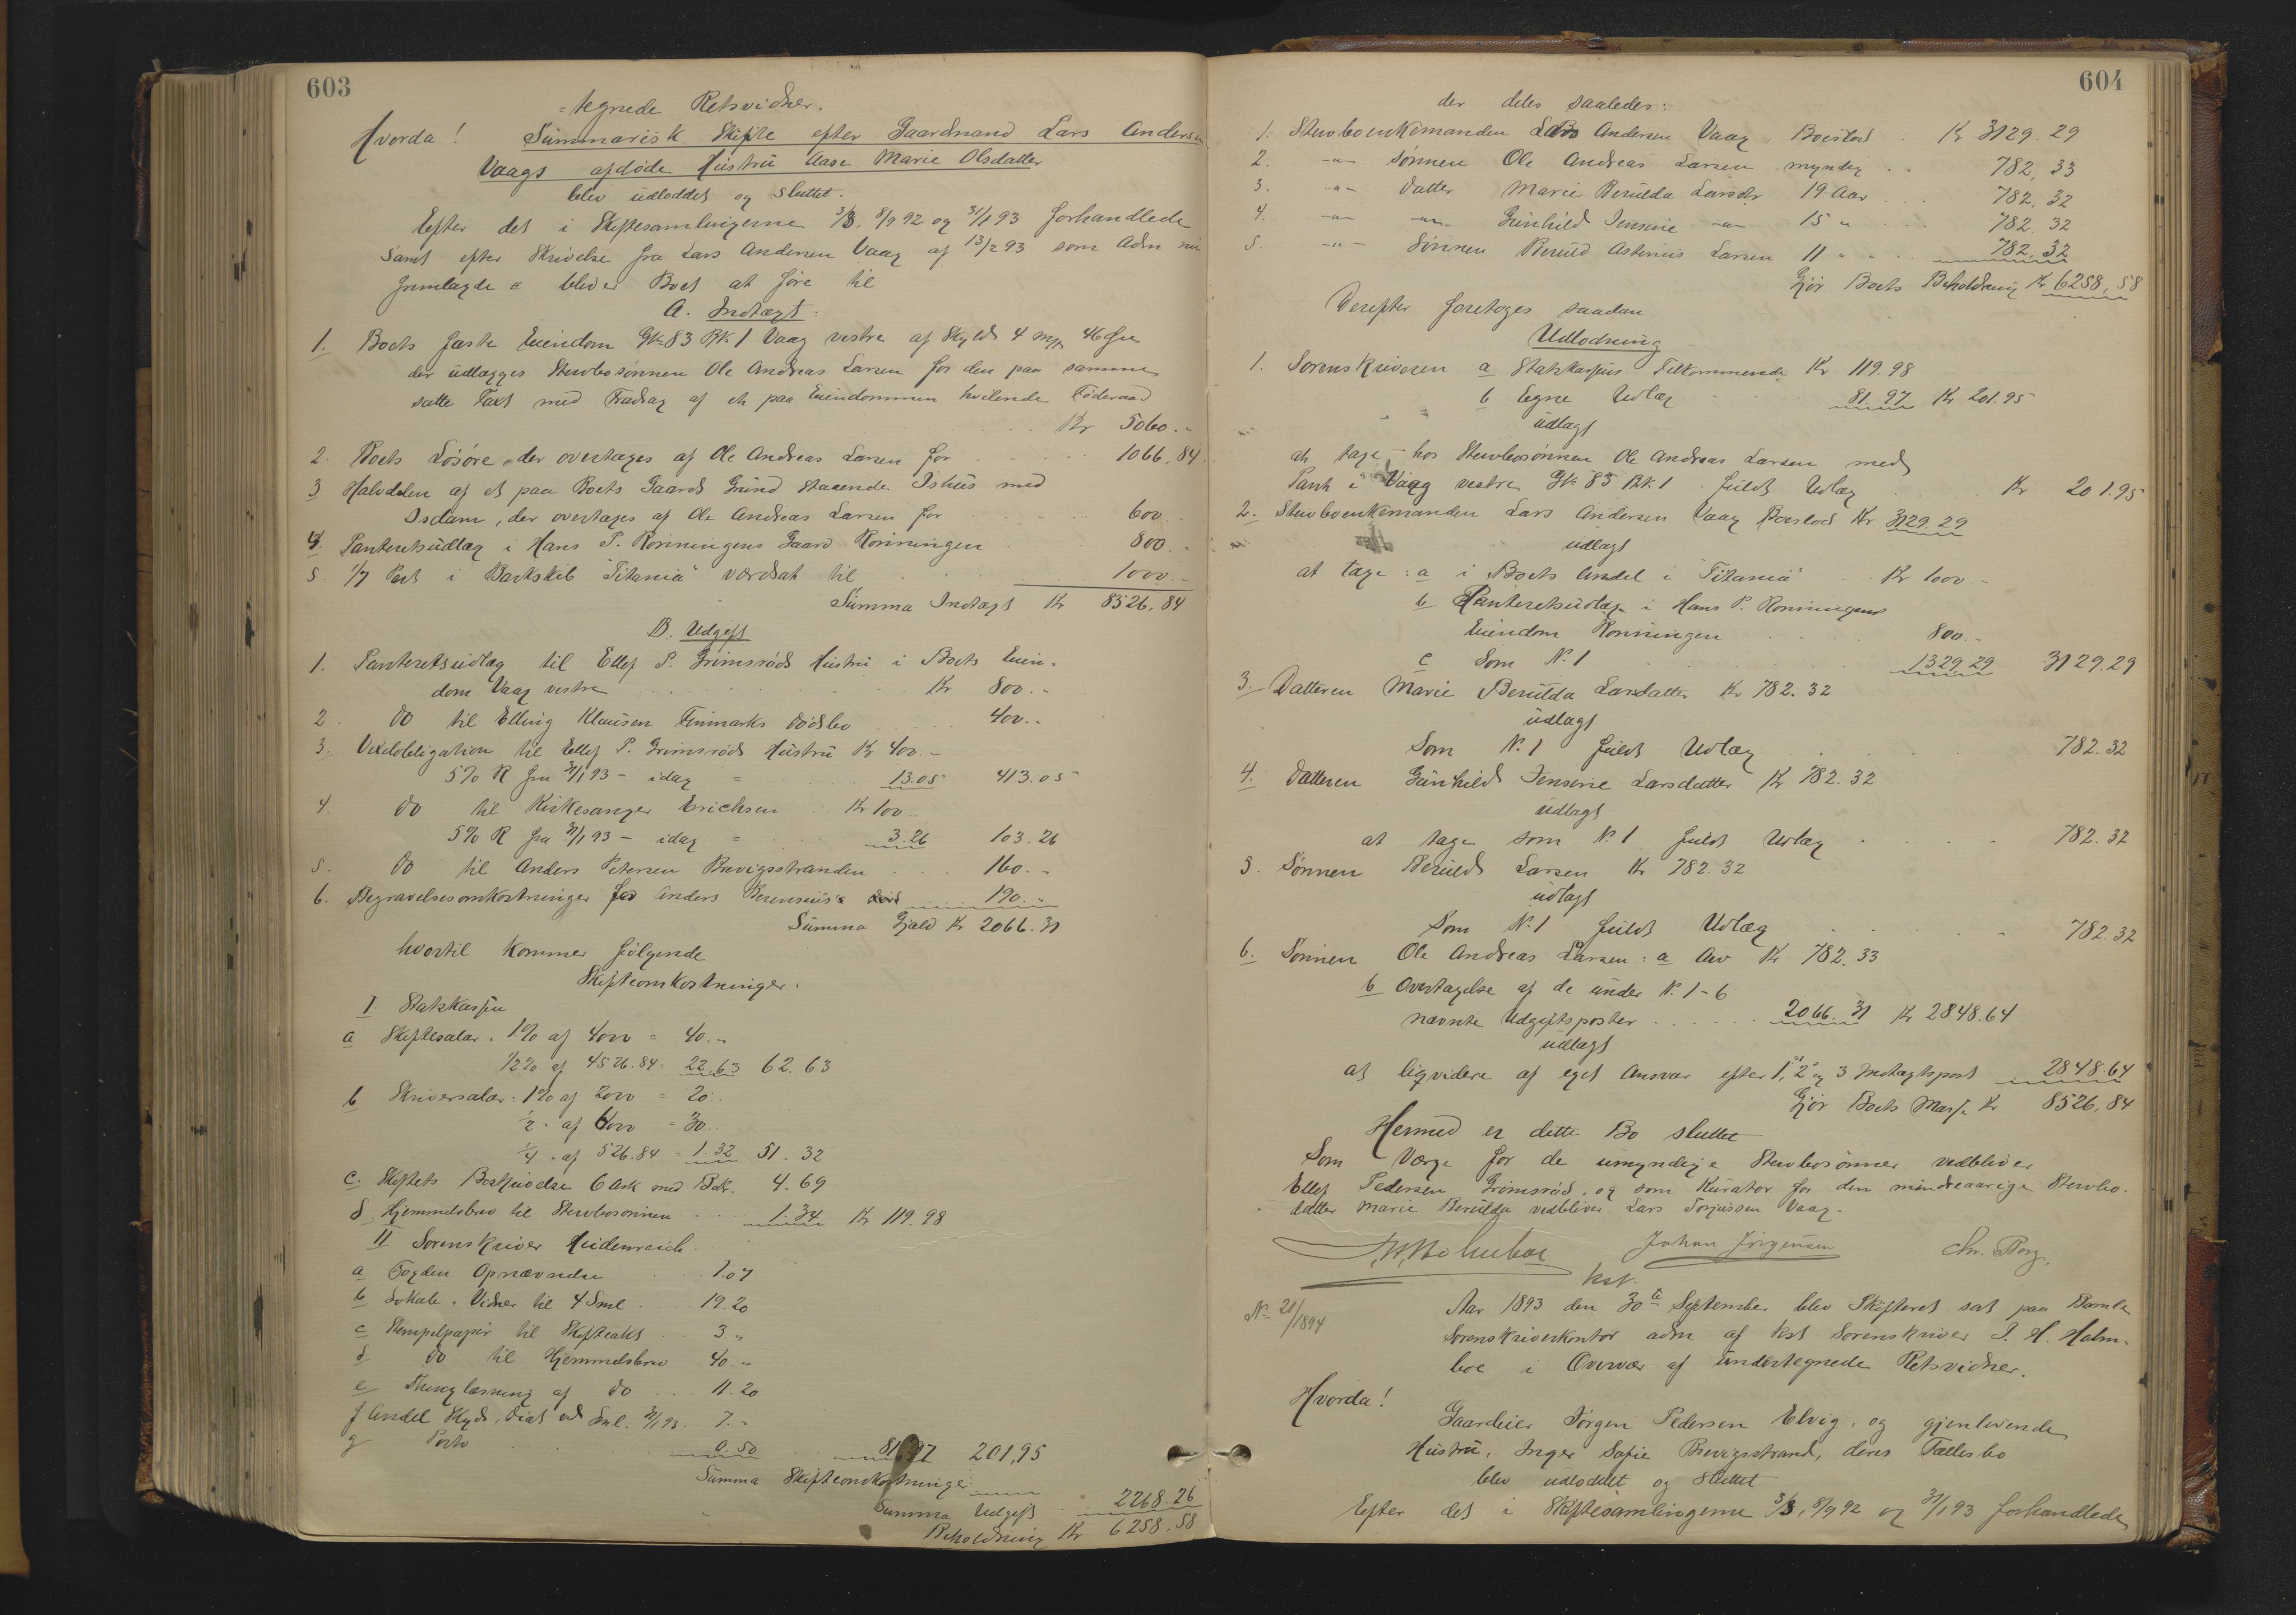 603
=tegnede Retsvidner.
Hvorda! Summarisk Skifte efter Gaardmand Lars Andersen
Vaags afdøde Hustru Aase Marie Olsdatter
blev udloddet og sluttet.
Efter det i Skiftesamlingerne 3/3, 8/9 92 og 31/1 93 forhandlede
samt efter Skrivelse fra Lars Andersen Vaag af 13/2 93 som Adm nu
fremlagde blev Boet at føre til
A. Indtægt:
1. Boets faste Eiendom Gk 83 Bk 1 Vaag vestre af Skyld 4 Mk 46 Øre
der udlægges Stervbosønnen Ole Andreas Larsen for den paa samme
satte Taxt med Fradrag af et paa Eiendommen hvilende Føderaad
Kr 5060.-
2. Boets Løsøre, der overtages af Ole Andreas Larsen for 1066,84
3 Halvdelen af et paa Boets Gaards Grund staaende Ishus med
Isdam, der overtages af Ole Andreas Larsen for 600.-
4. Panteretsudlæg i Hans P. Rønningens Gaard Rønningen 800.-
5. 1/7 Part i Barkskib "Titania" værdsat til 1000.-
Summa Indtægt Kr 8526,84
B. Udgift
1. Panteretsudlæg til Ellef P. Grimsrøds Hustru i Boets Eien-
dom Vaag vestre Kr 800.-
2. Do til Elling Klausen Finmarks Dødsbo 400.-
3. Vexelobligation til Ellef P. Grimsrøds Hustru Kr 400.-
5% R fra 31/1 93 - idag = 13.05 413.05
4. Do til Kirkesanger Erichsen Kr 100.
5% R fra 31/1 93 - idag = 3.26 103.26
5. Do til Anders Petersen Brevigsstranden 160.-
6. Begravelsesomkostninger for Anders 190.-
Summa Gjæld Kr 2066.31
hvortil kommer følgende
Skifteomkostninger.
I Statskassen
a Skiftesalær. 1% af 4000 = 40.-
1/2% af 4526.84 = 22.63 62.63
b Skriversalær. 1% af 2000 = 20.
1/2 " af 6000 = 30.
1/4 " af 526.84 = 1.32 51.32
c. Skiftets Beskrivelse 6 Ark med Bek. 4.69
d. Hjemmelsbrev til Stervbosønnen 1.34 Kr 119.98
II Sorenskriver Heidenreich
a Fogden Opnævnelse 1.07
b Lokale. Vidner til 4 Saml 19.20
c Stempelpapir til Skifteakt 3.-
d Do til Hjemmelsbrev 40.-
e Thinglæsning af Do 11.20
f Andel Skyds, Diæt ved Sml. 31/1 93. 7.-
g Porto 0.50 81.97 201,95
Summa Skifteomkostninger
Summa Udgift 2268.26
Beholdning Kr 6258,58
604
der deles saaledes:
1. Stervboenkemanden Lars Andersen Vaag, Boeslod Kr 3129.29
2. -"- Sønnen Ole Andreas Larsen myndig 782,33
3. -"- Datter Marie Berulda Larsdr 19 Aar 782.32
4. -"- -"- Gunhild Jensine -"- 15 " 782.32
5. -"- Sønnen Beruld Astinius Larsen 11 " 782.32
Gjør Boets Beholdning Kr 6258,58
Derefter foretoges saadan
Udlodning
1. Sorenskriveren a Statskassens Tilkommende Kr 119.98
b Egne Udlæg 81.97 Kr 201.95
udlagt
at tage hos Stervbosønnen Ole Andreas Larsen med
Pant i Vaag vestre Gk 83 Bk 1. fuldt Udlæg Kr 201.95
2. Stervboenkemanden Lars Andersen Vaag Boeslod Kr 3129.29
udlagt
at tage: a i Boets Andel i "Titania" Kr 1000.-
b Panteretsudlæg i Hans P. Rønningens
Eiendom Rønningen 800.-
c Som N. 1 1329.29 3129.29
3. Datteren Marie Berulda Larsdatter Kr 782.32
udlagt
Som N. 1 fuldt Udlæg 782.32
4. Datteren Gunhild Jensine Larsdatter Kr 782.32
udlagt
at tage som N. 1 fuldt Udlæg 782.32
5. Sønnen Beruld Larsen Kr 782.32
udlagt
Som N. 1 fuldt Udlæg 782.32
6. Sønnen Ole Andreas Larsen: a Arv Kr 782.33
b Overtagelse af de under N. 1-6
nævnte Udgiftsposter 2066.31 Kr 2848.64
udlagt
at liqvidere af eget Ansvar efter 1, 2 og 3 Indtægtspost 2848.64
Gjør Boets Masse Kr 8526,84
Hermed er dette Bo sluttet
Som Værge for de umyndige Stervbosønner vedbliver
Ellef Pedersen Grimsrød, og som Kurator for den mindreaarige Stervbo-
datter Marie Berulda vedbliver Lars Torjussen Vaag.
Holmboe Johan Jørgensen Chr. Borg.
kst.
N- 21/1894
Aar 1893 den 30te September blev Skifteret sat paa Bamle
Sorenskriverkontor adm af kst Sorenskriver J. H. Holm-
boe i Overvær af undertegnede Retsvidner.
Hvorda!
Gaardeier Jørgen Pedersen Elvig, og gjenlevende
Hustru, Inger Sofie Brevigsstrand, deres Fællesbo
blev udloddet og sluttet
Efter det i Skiftesamlingerne 3/3, 8/9 92 og 31/1 93 forhandlede